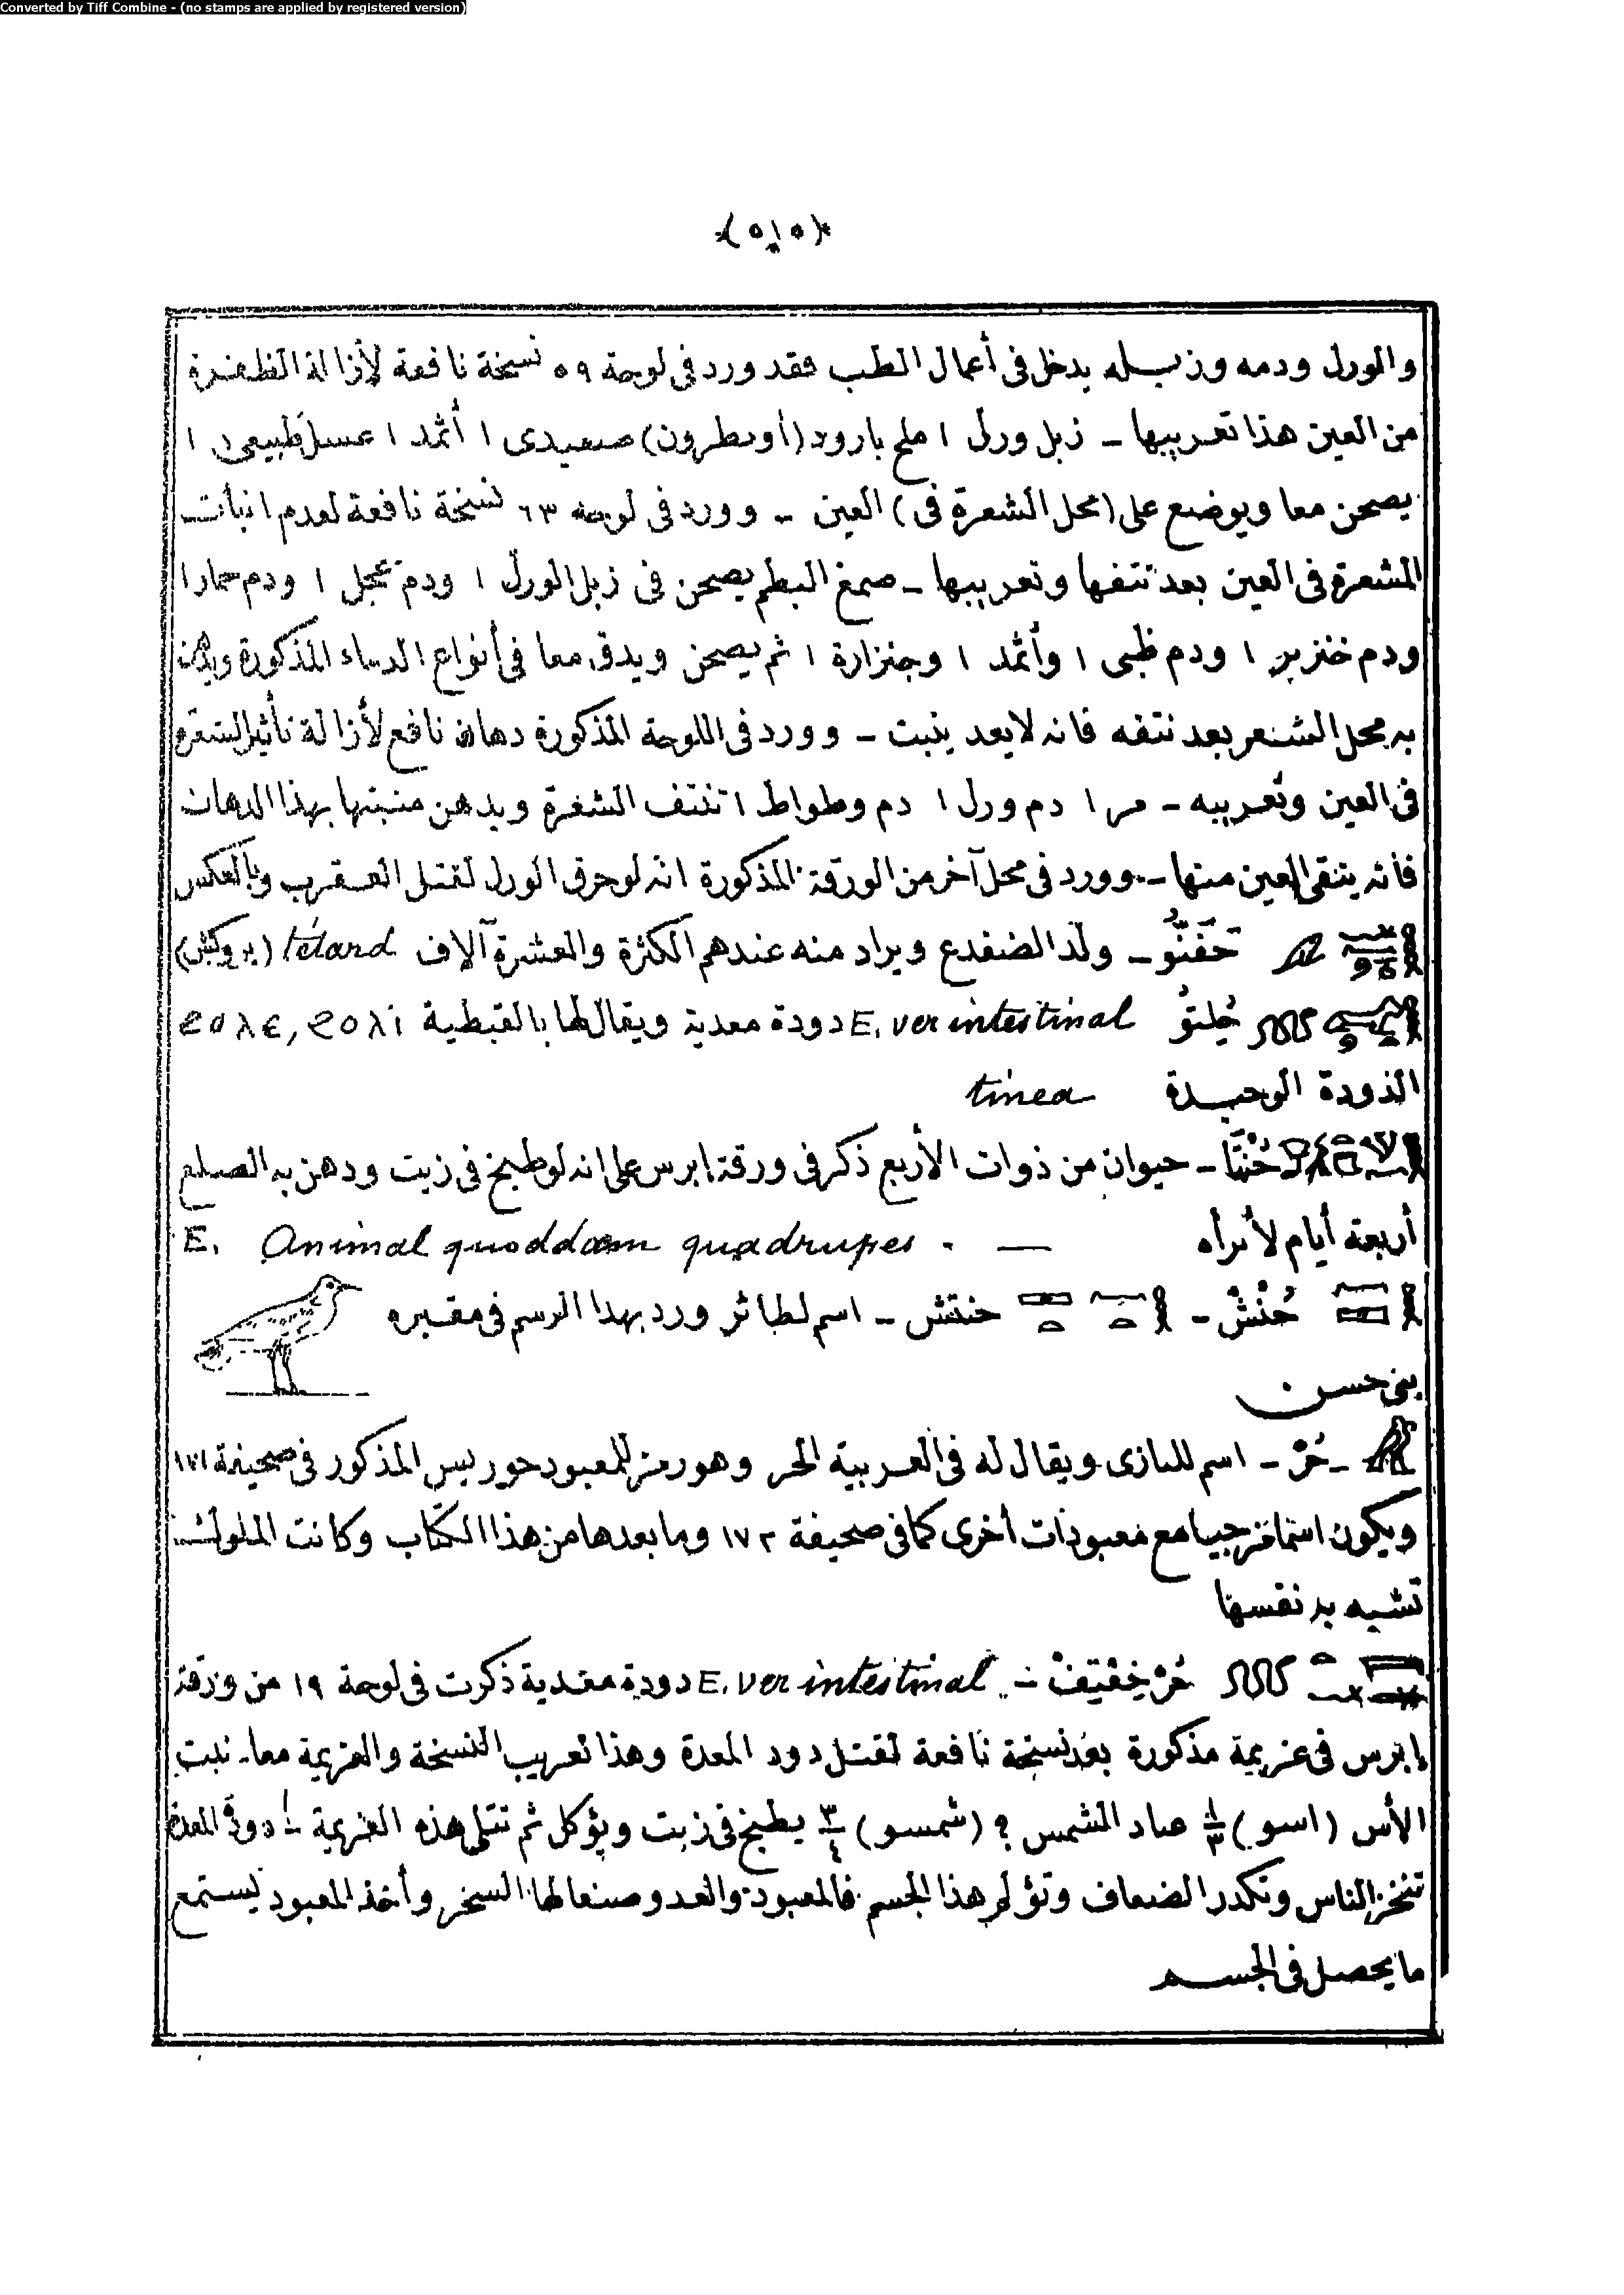 Converted by Tiff Combine - (no stamps are applied by registered version)
*(٥١٥)*
والورل ودمه وزبله يدخل فى أعمال الطب فقد ورد فى لوحة ٥٩ نسخة نافعة لأزالة الظفرة
من العين هذا تعريبها - زبل ورل ١ ملح بارود (أو نطرون) صعيدى ١ أثمد ١ عسل طبيعى ١
يصحن معا ويوضع على (محل الشعرة فى) العين - وورد فى لوحة ٦٣ نسخة نافعة لعدم انبات
الشعرة فى العين بعد نتفها وتعريبها - صمغ البطم يصحن فى زبل الورل ١ ودم عجل ١ ودم حمار ١
ودم خنزير ١ ودم ظبى ١ وأثمد ١ وجنزارة ١ ثم يصحن ويدق معا فى أنواع الدماء المذكورة ويدهن
به محل الشعر بعد نتفه فانه لا يعد ينبت - وورد فى اللوحة المذكورة دهان نافع لأزالة تأثير الشعرة
فى العين وتعريبه - مر ١ دم ورل ١ دم وطواط ١ تنتف الشعرة ويدهن منبتها بهذا الدهان
فأنه ينقى العين منها - وورد فى محل آخر من الورقة المذكورة انه لو حرق الورل لقتل العقرب وبالعكس
حَفَنُّو - ولد الضفدع ويراد منه عندهم الكثرة والعشرة آلاف tétard (بروكش)
حُلِتوُ E. ver intestinal دودة معدية ويقال لها بالقبطية ϩⲟⲗⲉ, ϩⲟⲗⲓ
الدودة الوحيدة tinea
حُنْتَا - حيوان من ذوات الأربع ذكر فى ورقة ابرس على انه لو طبخ فى زيت ودهن به الصلع
أربعة أيام لأبرأه — . E. Animal quoddam quadrupes
حُنْشْ - حنتش - اسم لطائر ورد بهذا الرسم فى مقبره
بنى حسن
- حُرْ - اسم للبازى ويقال له فى العربية الحر وهو رمز للمعبود حوريس المذكور فى صحيفة ١٧١
ويكون اسما مزجيا مع معبودات أخرى كما فى صحيفة ١٧٢ وما بعدها من هذا الكتاب وكانت الملوك
تشبه به نفسها
حُرْ خِفْتِفْ - E. ver intestinal دودة معدية ذكرت فى لوحة ١٩ من ورقة
إبرس فى عزيمة مذكورة بعد نسخة نافعة لقتل دود المعدة وهذا تعريب النسخة والعزيمة معا - نبت
الأس (اسو) عباد الشمس ؟ (شمسو) ٣/٤ يطبخ فى زيت ويؤكل ثم تتلى هذه العزيمة - دودة المعدة
تنخز الناس وتكدر الضعاف وتؤلم هذا الجسم فالمعبود والعدو صنعا لها السخر وأخذ المعبود يستمع
ما يحصل فى الجسم